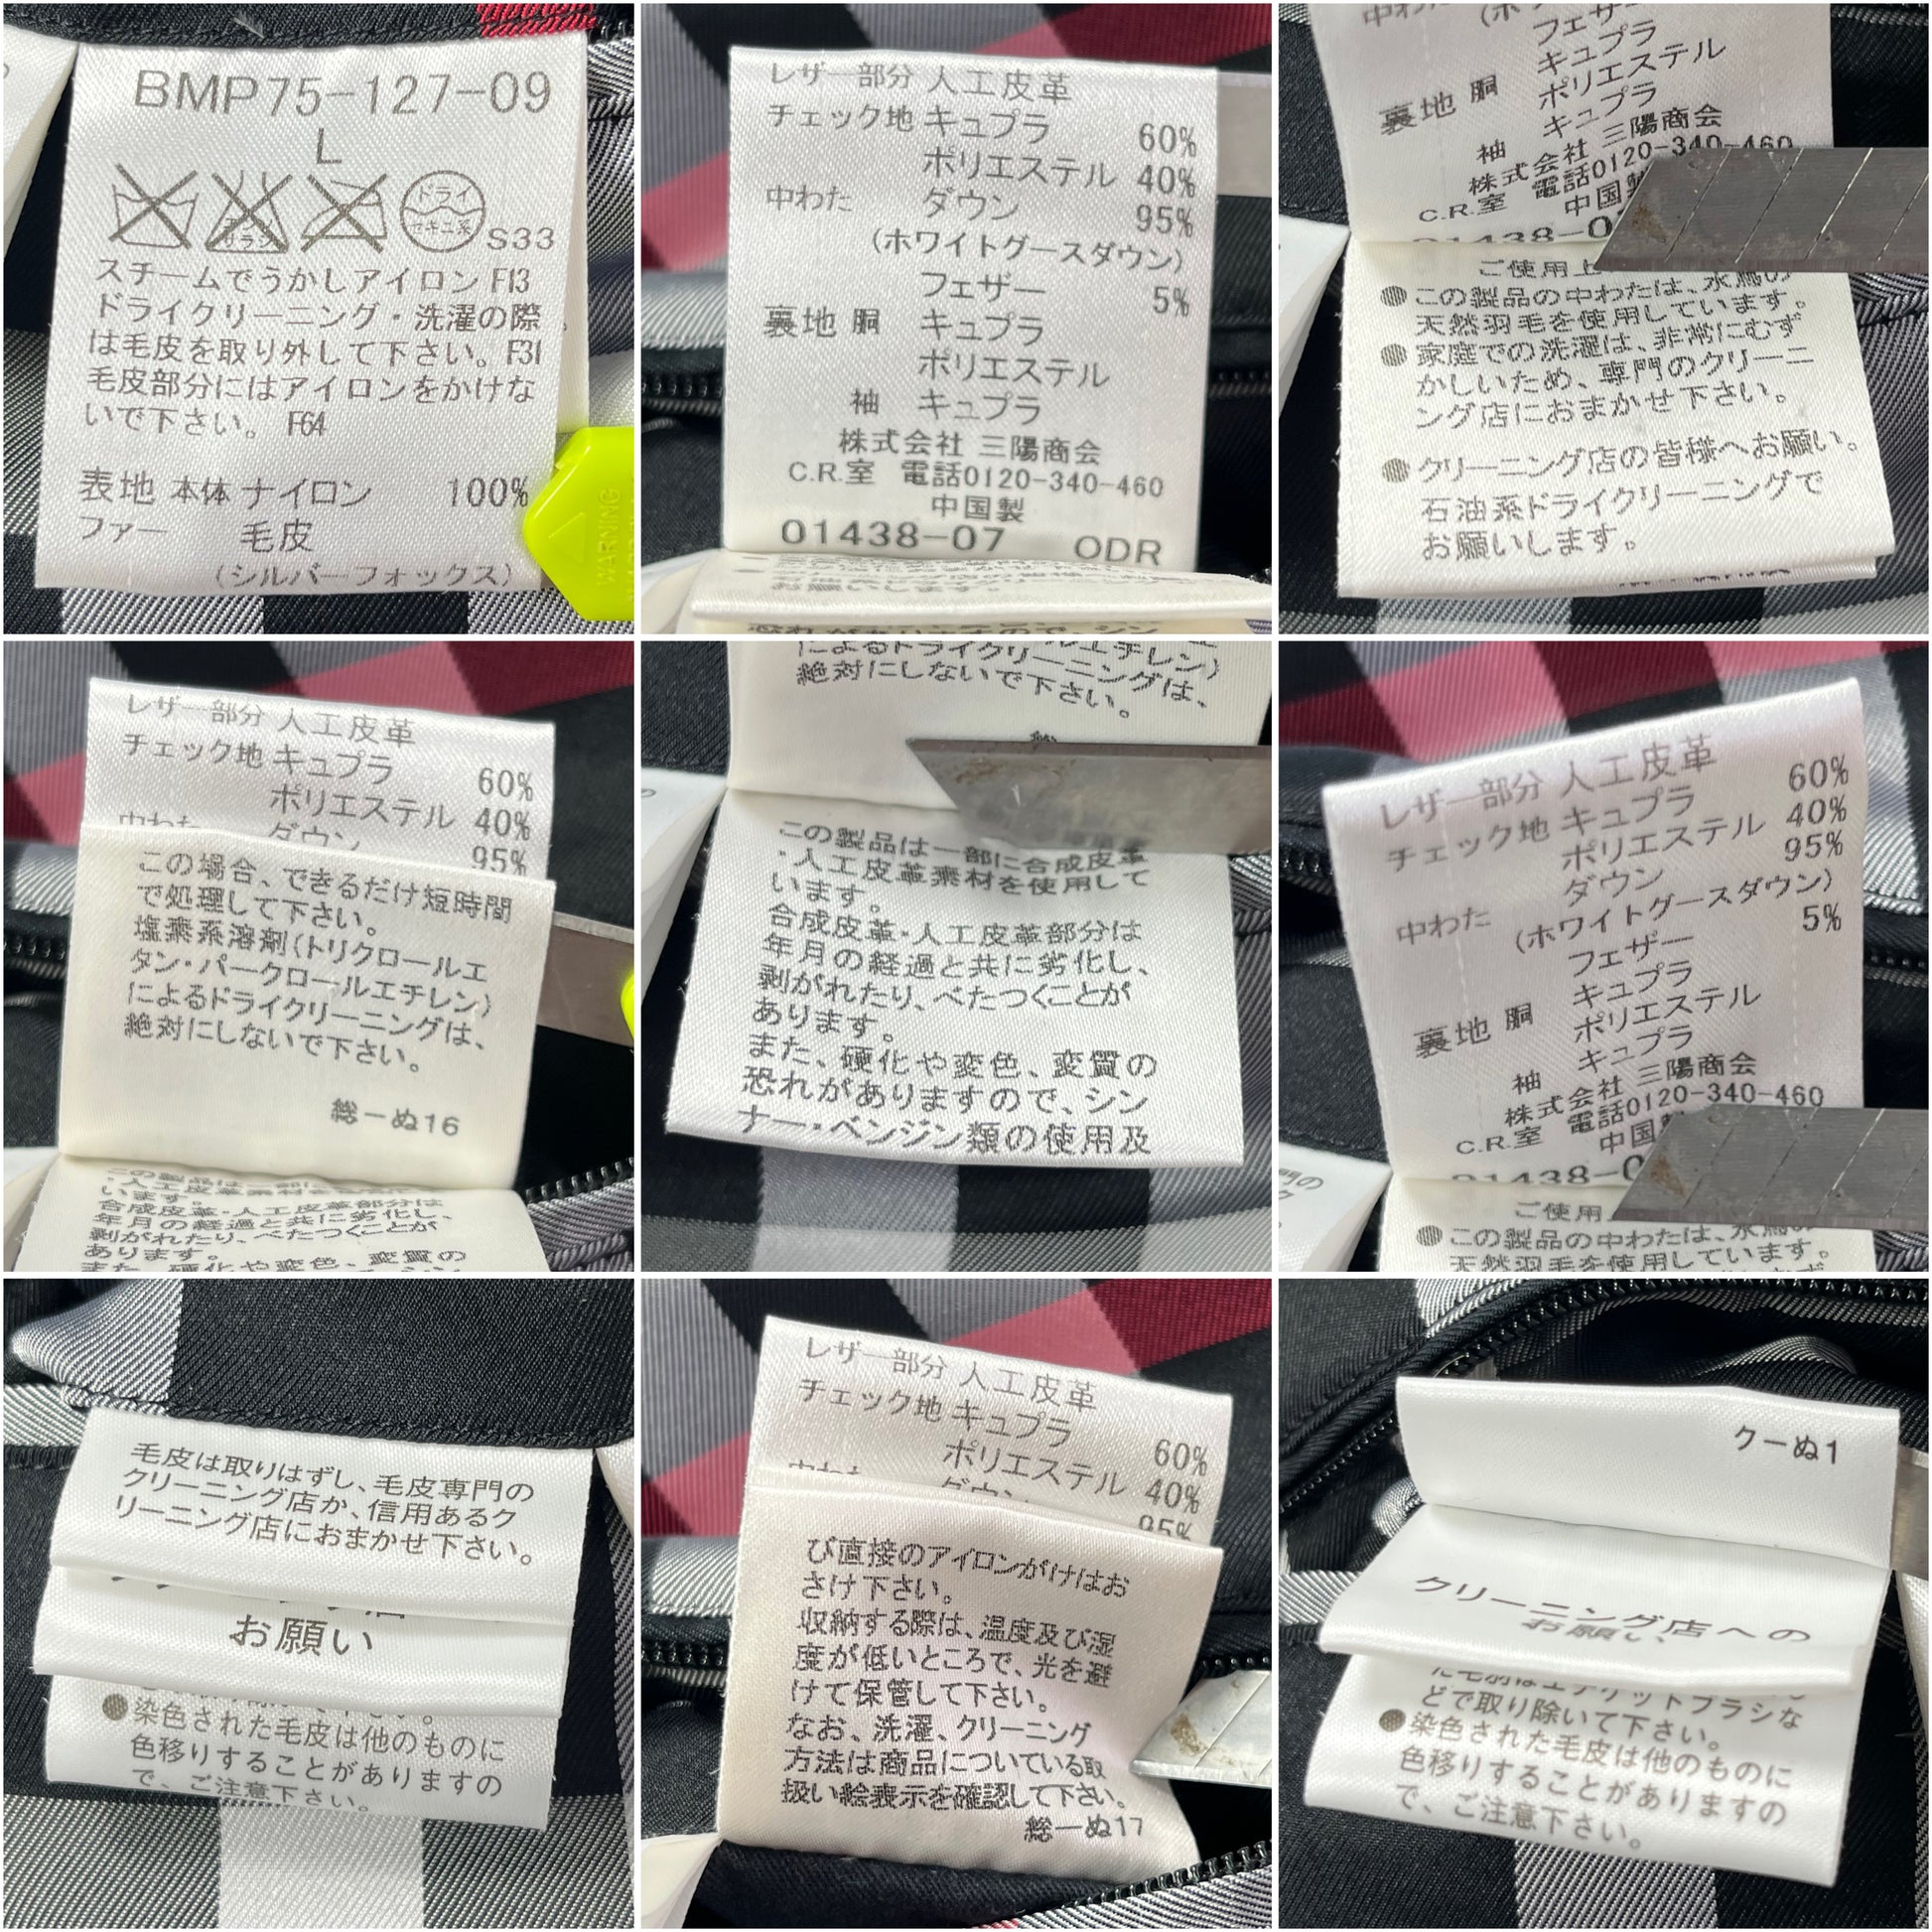 BMP75-127-09
L
ドライ
セキユ系
S33
スチームでうかしアイロン F13
ドライクリーニング・洗濯の際
は毛皮を取り外して下さい。F31
毛皮部分にはアイロンをかけな
いで下さい。 F64
表地 本体 ナイロン 100%
ファー 毛皮
(シルバーフォックス)
WARNING
レザー部分 人工皮革
チェック地 キュプラ 60%
ポリエステル 40%
中わた ダウン 95%
(ホワイトグースダウン)
フェザー 5%
裏地 胴 キュプラ
ポリエステル
袖 キュプラ
株式会社 三陽商会
C.R.室 電話0120-340-460
中国製
01438-07 ODR
お願いします。
中わた
フェザー
キュプラ
裏地 胴 ポリエステル
キュプラ
袖
株式会社 三陽商会
C.R.室 電話0120-340-460
中国製
01438-0
ご使用上
●この製品の中わたは、水鳥の
天然羽毛を使用しています。
●家庭での洗濯は、非常にむず
かしいため、専門のクリーニ
ング店におまかせ下さい。
●クリーニング店の皆様へお願い。
石油系ドライクリーニングで
お願いします。
レザー部分 人工皮革
チェック地 キュプラ 60%
ポリエステル 40%
中わた ダウン 95%
この場合、できるだけ短時間
で処理して下さい。
塩素系溶剤(トリクロールエ
タン・パークロールエチレン)
によるドライクリーニングは、
絶対にしないで下さい。
総ーぬ16
この製品は一部に
・人工皮革素材を
います。
合成皮革・人工皮革部分は
年月の経過と共に劣化し、
剥がれたり、べたつくことが
あります。
また、硬化や変色、変質の
によるドライクリーニングは、
絶対にしないで下さい。
この製品は一部に合成皮革
・人工皮革素材を使用して
います。
合成皮革・人工皮革部分は
年月の経過と共に劣化し、
剥がれたり、べたつくことが
あります。
また、硬化や変色、変質の
恐れがありますので、シン
ナー・ベンジン類の使用及
レザー部分 人工皮革
チェック地 キュプラ 60%
ポリエステル 40%
ダウン 95%
中わた (ホワイトグースダウン)
フェザー 5%
キュプラ
裏地 胴 ポリエステル
キュプラ
袖
株式会社 三陽商会
C.R.室 電話0120-340-460
中国
01438-0
ご使用
●この製品の中わたは、水鳥の
天然羽毛を使用しています。
毛皮は取りはずし、毛皮専門の
クリーニング店か、信用あるク
リーニング店におまかせ下さい。
お願い
●染色された毛皮は他のものに
色移りすることがありますの
で、ご注意下さい。
レザー部分 人工皮革
チェック地 キュプラ 60%
ポリエステル 40%
中わた ダウン 95%
び直接のアイロンがけはお
さけ下さい。
収納する際は、温度及び湿
度が低いところで、光を避
けて保管して下さい。
なお、洗濯、クリーニング
方法は商品についている取
扱い絵表示を確認して下さい。
総ーぬ17
クーぬ1
クリーニング店への
お願い
た毛別はエチケットブラシな
どで取り除いて下さい。
●染色された毛皮は他のものに
色移りすることがありますの
で、ご注意下さい。